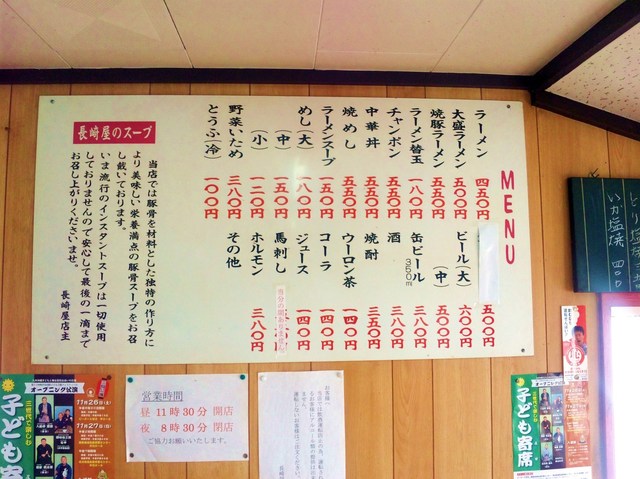 MENU
ラーメン 四五〇円
大盛ラーメン 五〇〇円
焼豚ラーメン 五五〇円
ラーメン替玉 一八〇円
チャンポン 五五〇円
中華丼 五五〇円
焼めし 五五〇円
ラーメンスープ 一五〇円
めし(大) 一八〇円
(中) 一五〇円
(小) 一二〇円
野菜いため 三八〇円
とうふ(冷) 一〇〇円
五〇〇円
ビール(大) 六〇〇円
(中) 五〇〇円
缶ビール 350ml 三八〇円
酒 三八〇円
焼酎 三五〇円
ウーロン茶 一四〇円
コーラ 一四〇円
ジュース 一四〇円
馬刺し
ホルモン 三八〇円
その他
長崎屋のスープ
当店では豚骨を材料とした独特の作り方に
より美味しい栄養満点の豚骨スープをお召
し戴いております。
いま流行のインスタントスープは一切使用
しておりませんので安心して最後の一滴まで
お召し上がりくださいませ。
長崎屋店主
いか塩焼 400
オープニング公演
三世代で楽しむ
子ども寄席
11月26日(土)
11月27日(日)
営業時間
昼 11時30分 開店
夜 8時30分 閉店
ご協力お願いいたします。
お客様へ
三世代で楽しむ
子ども寄席